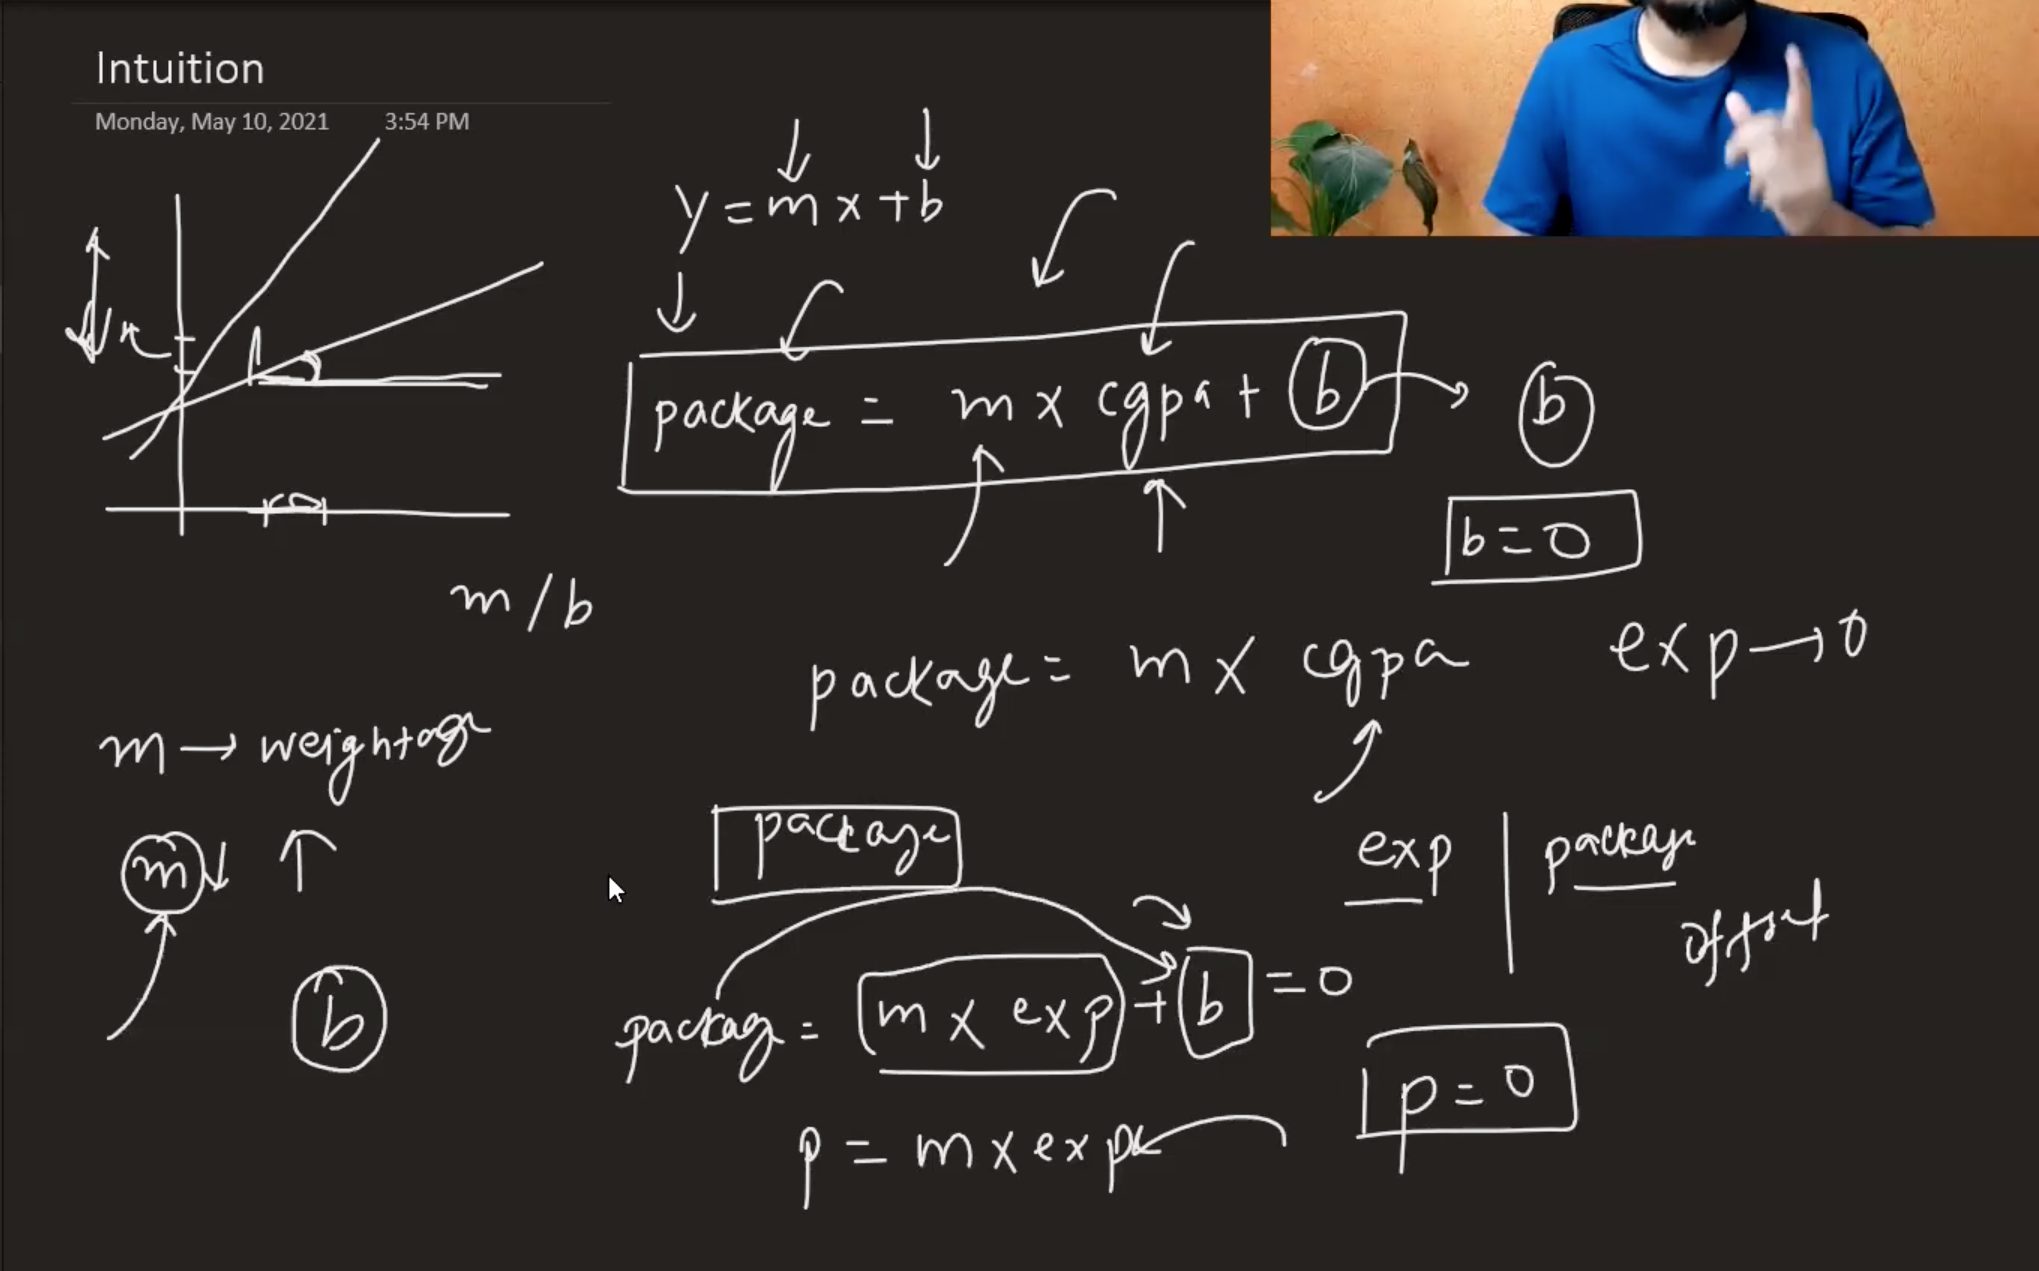 Intuition
Monday, May 10, 2021 3:54 PM
y = mx + b
package = m x cgpa + b
b
b = 0
m/b
package = m x cgpa
exp → 0
m → weightage
m ↓ ↑
package
exp | package
offset
b
package = m x exp + b = 0
p = 0
p = m x exp